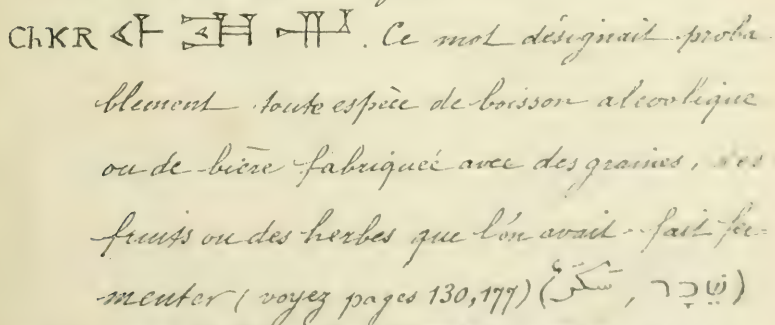 ChKR 𒅆 𒂵 𒊒. Ce mot désignait proba
blement toute espèce de boisson alcoolique
ou de bière fabriquée avec des graines, des
fruits ou des herbes que l'on avait fait fer-
menter (voyez pages 130, 177) (שֵׁכָר, سَكَرٌ)